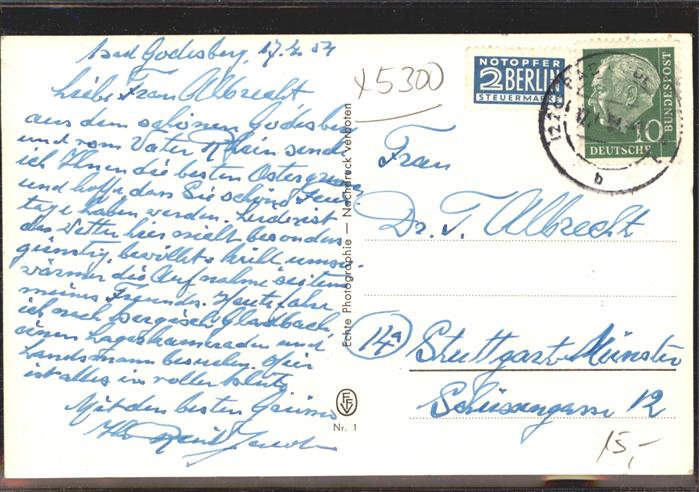 Bad Godesberg, 17.4.54
Liebe Frau Albrecht
aus dem schönen Godesberg
und vom Vater Rhein sende
ich Ihnen die besten Ostergrüsse
und hoffe dass Sie schöne Feier-
tage haben werden. Leider ist
das Wetter hier nicht besonders
günstig, bewölkt & kühl, umso
wärmer die Aufnahme seitens
meines Freundes. Heute fahre
ich nach Bergisch Gladbach,
einen Lagerkameraden und
Landsmann besuchen. Hier
ist alles in voller Blüte
Mit den besten Grüssen
Ihr
Echte Photographie — Nachdruck verboten
Nr. 1
x5300
NOTOPFER
2 BERLIN
STEUERMARKE
DEUTSCHE
BUNDESPOST
10
b
Frau
Dr. T. Albrecht
14a
Stuttgart-Münster
12
15,-